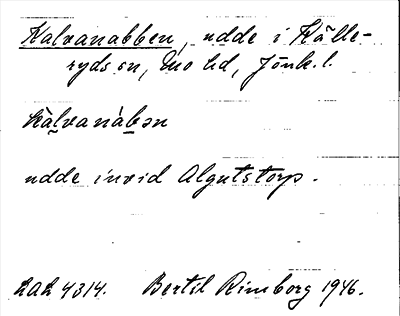 Kalvanabben, udde i Kålle-
ryds sn, Mo hd, Jönk. l.
kàlvanábən
udde invid Algutstorp.
LAL 4314. Bertil Rimborg 1946.